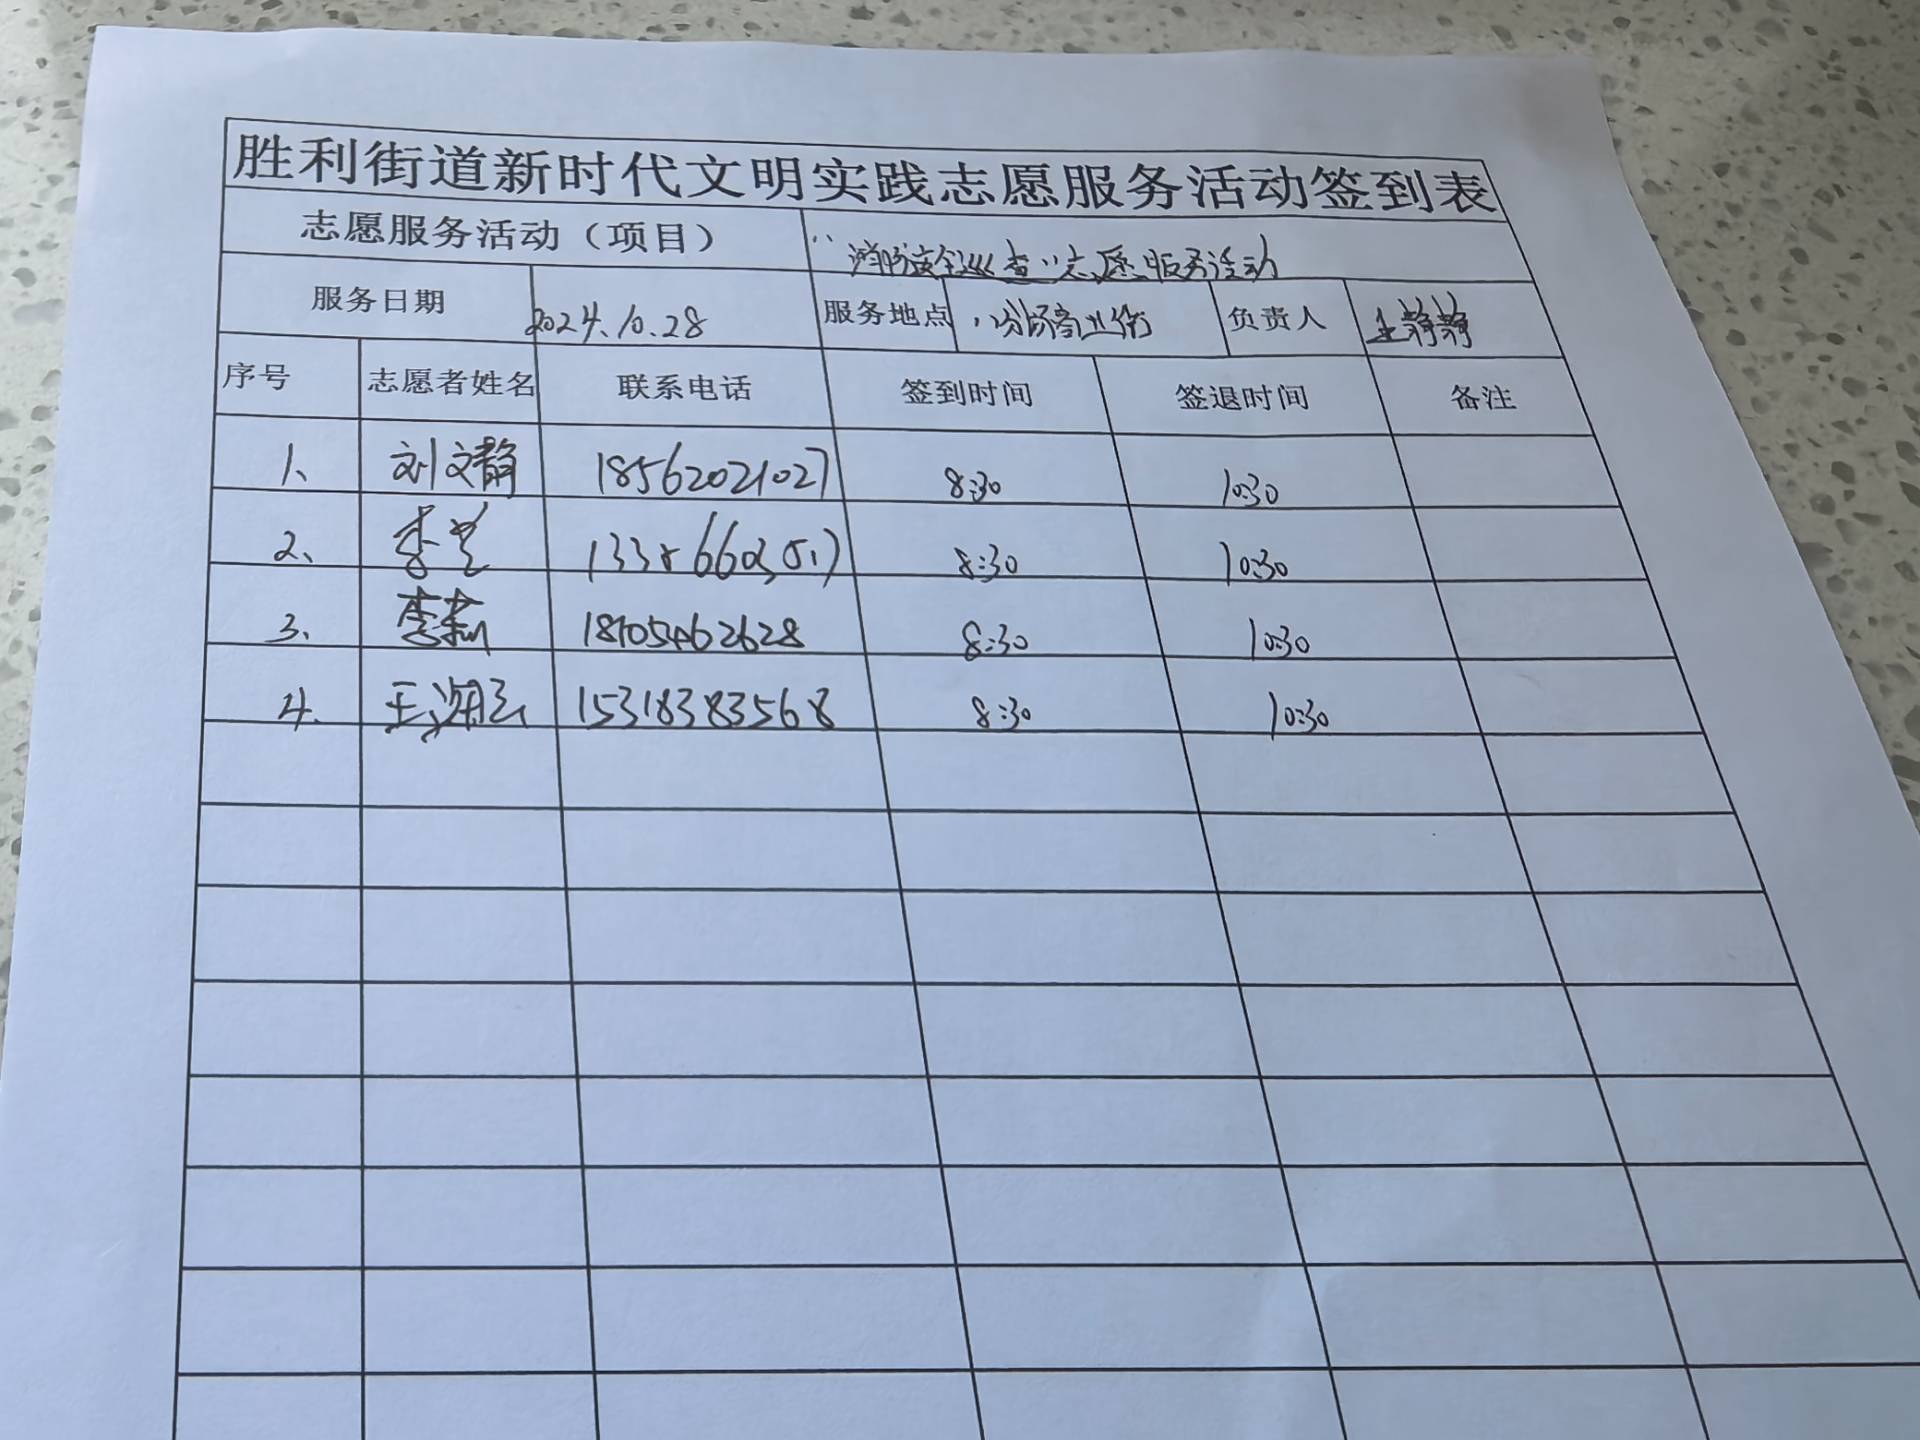 胜利街道新时代文明实践志愿服务活动签到表
志愿服务活动（项目） “消防安全巡查”志愿服务活动
服务日期 2024.10.28 服务地点 八分场商业街 负责人 王静静
序号 志愿者姓名 联系电话 签到时间 签退时间 备注
1、 刘文静 18562021027 8:30 10:30
2、 李 8:30 10:30
3、 李燕 18105462628 8:30 10:30
4. 王海云 15318383568 8:30 10:30